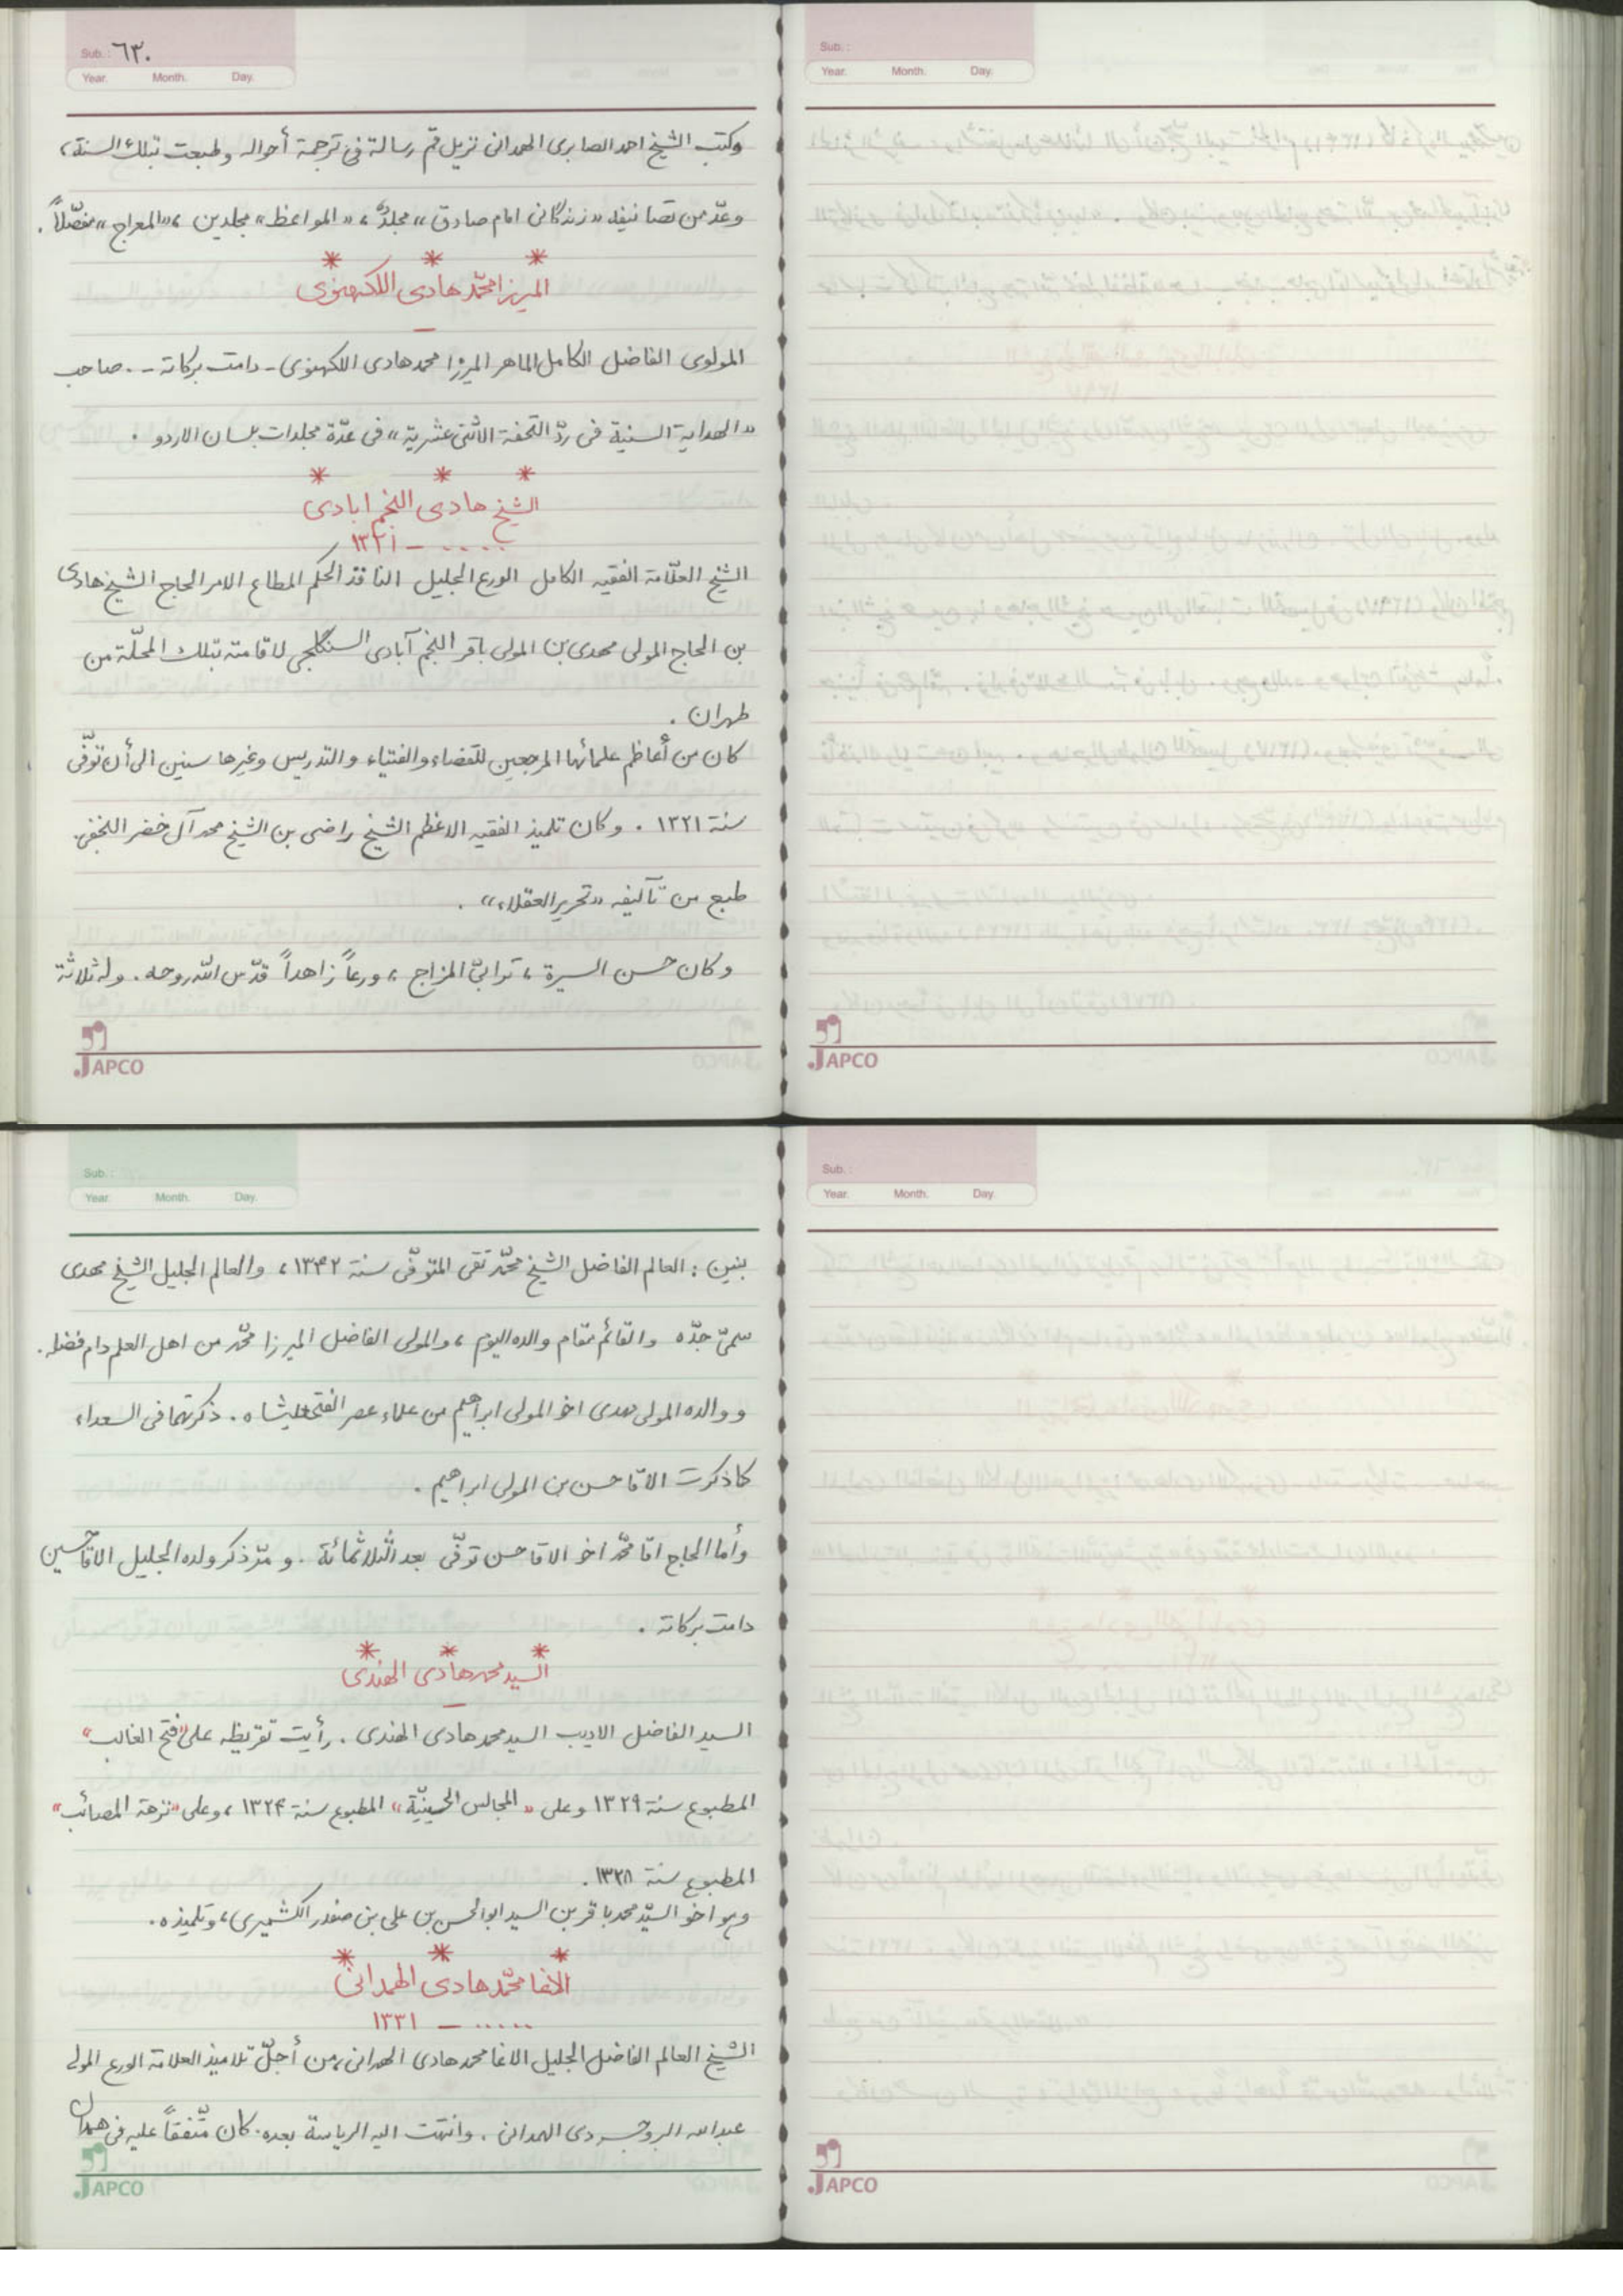 Sub. : ٦٣٠
Year. Month. Day.
وكتب الشيخ احمد الصابرى الهمدانى نزيل قم رسالة فى ترجمة أحواله وطبعت بتلك السنة،
وعدّ من تصانيفه «زندگانى امام صادق» مجلدٌ، «المواعظ» مجلدين، «المعراج» مفصّلاً.
* * *
الميرزا محمّد هادى اللكهنوى
—
المولوى الفاضل الكامل الماهر الميرزا محمد هادى اللكهنوى - دامت بركاته - . صاحب
«الهداية السنية فى ردّ التحفة الاثنى عشرية» فى عدّة مجلدات بلسان الاردو .
* * *
الشيخ هادى النجم ابادى
..... – ١٣٢١
الشيخ العلّامة الفقيه الكامل الورع الجليل النافذ الحكم المطاع الامر الحاج الشيخ هادى
بن الحاج المولى مهدى بن المولى باقر النجم آبادى السنگلجى لاقامته بتلك المحلّة من
طهران .
كان من أعاظم علمائها المرجعين للقضاء والفتياء والتدريس وغيرها سنين الى أن توفّى
سنة ١٣٢١ . وكان تلميذ الفقيه الاعظم الشيخ راضى بن الشيخ محمد آل خضر النجفى.
طبع من تآليفه «تحرير العقلاء» .
وكان حسن السيرة، ترابىّ المزاج، ورعاً زاهداً قدّس الله روحه. وله ثلاثة
JAPCO
Sub. :
Year. Month. Day.
JAPCO
Sub. :
Year. Month. Day.
بنين : العالم الفاضل الشيخ محمّد تقى المتوفّى سنة ١٣٤٢، والعالم الجليل الشيخ مهدى
سمىّ جدّه والقائم مقام والده اليوم، والمولى الفاضل الميرزا محمّد من اهل العلم دام فضله.
ووالده المولى مهدى اخو المولى ابراهيم من علماء عصر الفتحعليشاه. ذكرتهما فى السعداء
كما ذكرت الاقا حسن بن المولى ابراهيم .
وأما الحاج اقا محمّد اخو الاقا حسن توفّى بعد الثلاثمائة . و مرّ ذكر ولده الجليل الاقا حسين
دامت بركاته .
* * *
السيد محمد هادى الهندى
—
السيد الفاضل الاديب السيد محمد هادى الهندى . رأيت تقريظه على «فتح الغالب»
المطبوع سنة ١٣٢٩ وعلى «المجالس الحسينيّة» المطبوع سنة ١٣٢٤، وعلى «نزهة المصائب»
المطبوع سنة ١٣٢٨.
وهو اخو السيّد محمد باقر بن السيد ابوالحسن بن على بن صفدر الكشميرى، وتلميذه.
* * *
الاغا محمّد هادى الهمدانى
..... – ١٣٣١
الشيخ العالم الفاضل الجليل الاغا محمد هادى الهمدانى، من أجلّ تلاميذ العلامة الورع المولى
عبدالله البروجردى الهمدانى . وانتهت اليه الرياسة بعده. كان متّفقاً عليه فى همدان
JAPCO
Sub. :
Year. Month. Day.
JAPCO